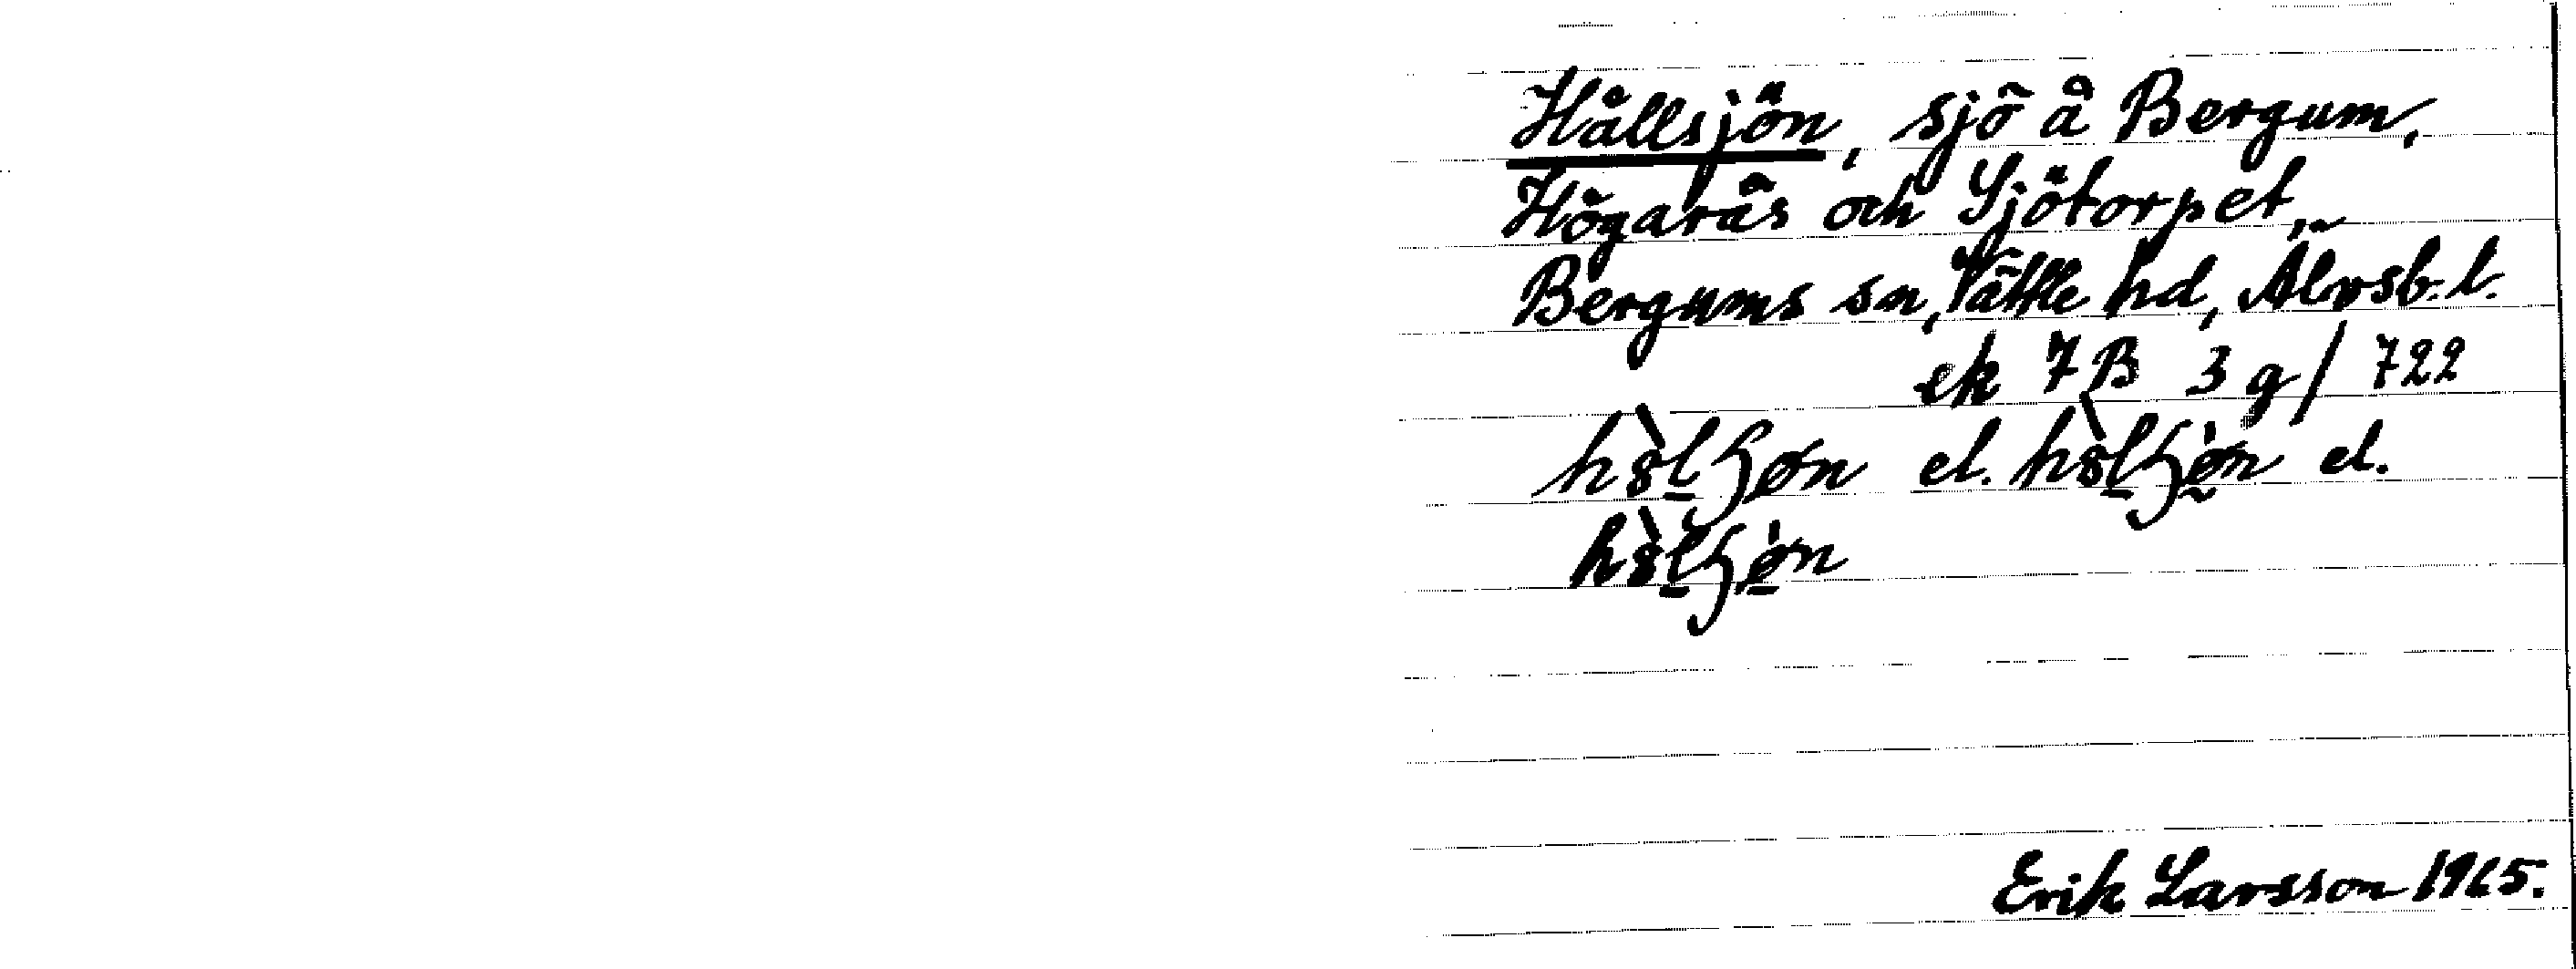 Hållsjön, sjö å Bergum,
Högarås och Sjötorpet,
Bergums sn, Vättle hd, Älvsb. l.
ek 7B 3 g/ 722
el. el.
Erik Larsson 1965.